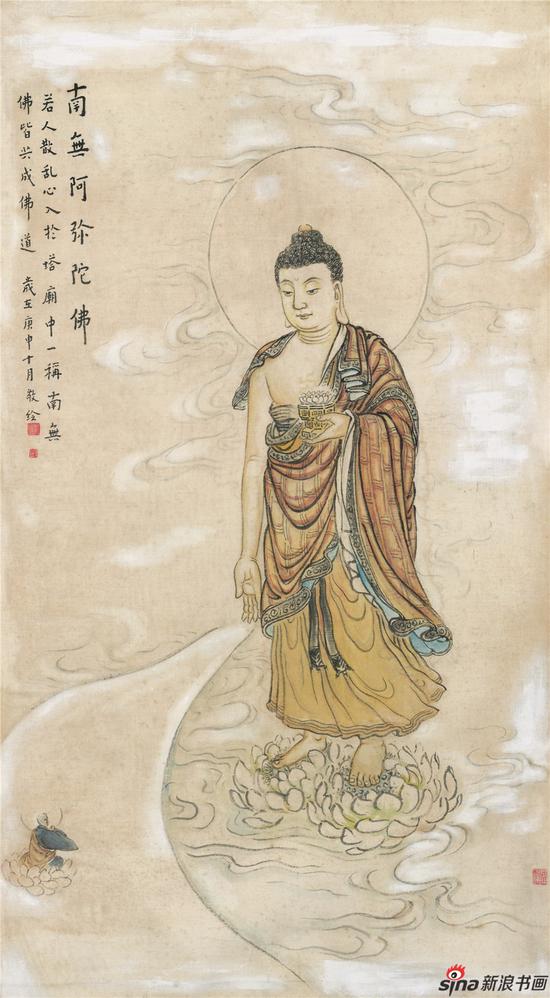 南無阿弥陀佛
若人散乱心入於塔廟中一稱南無
佛皆共成佛道 歲在庚申十月敬绘
sina新浪书画